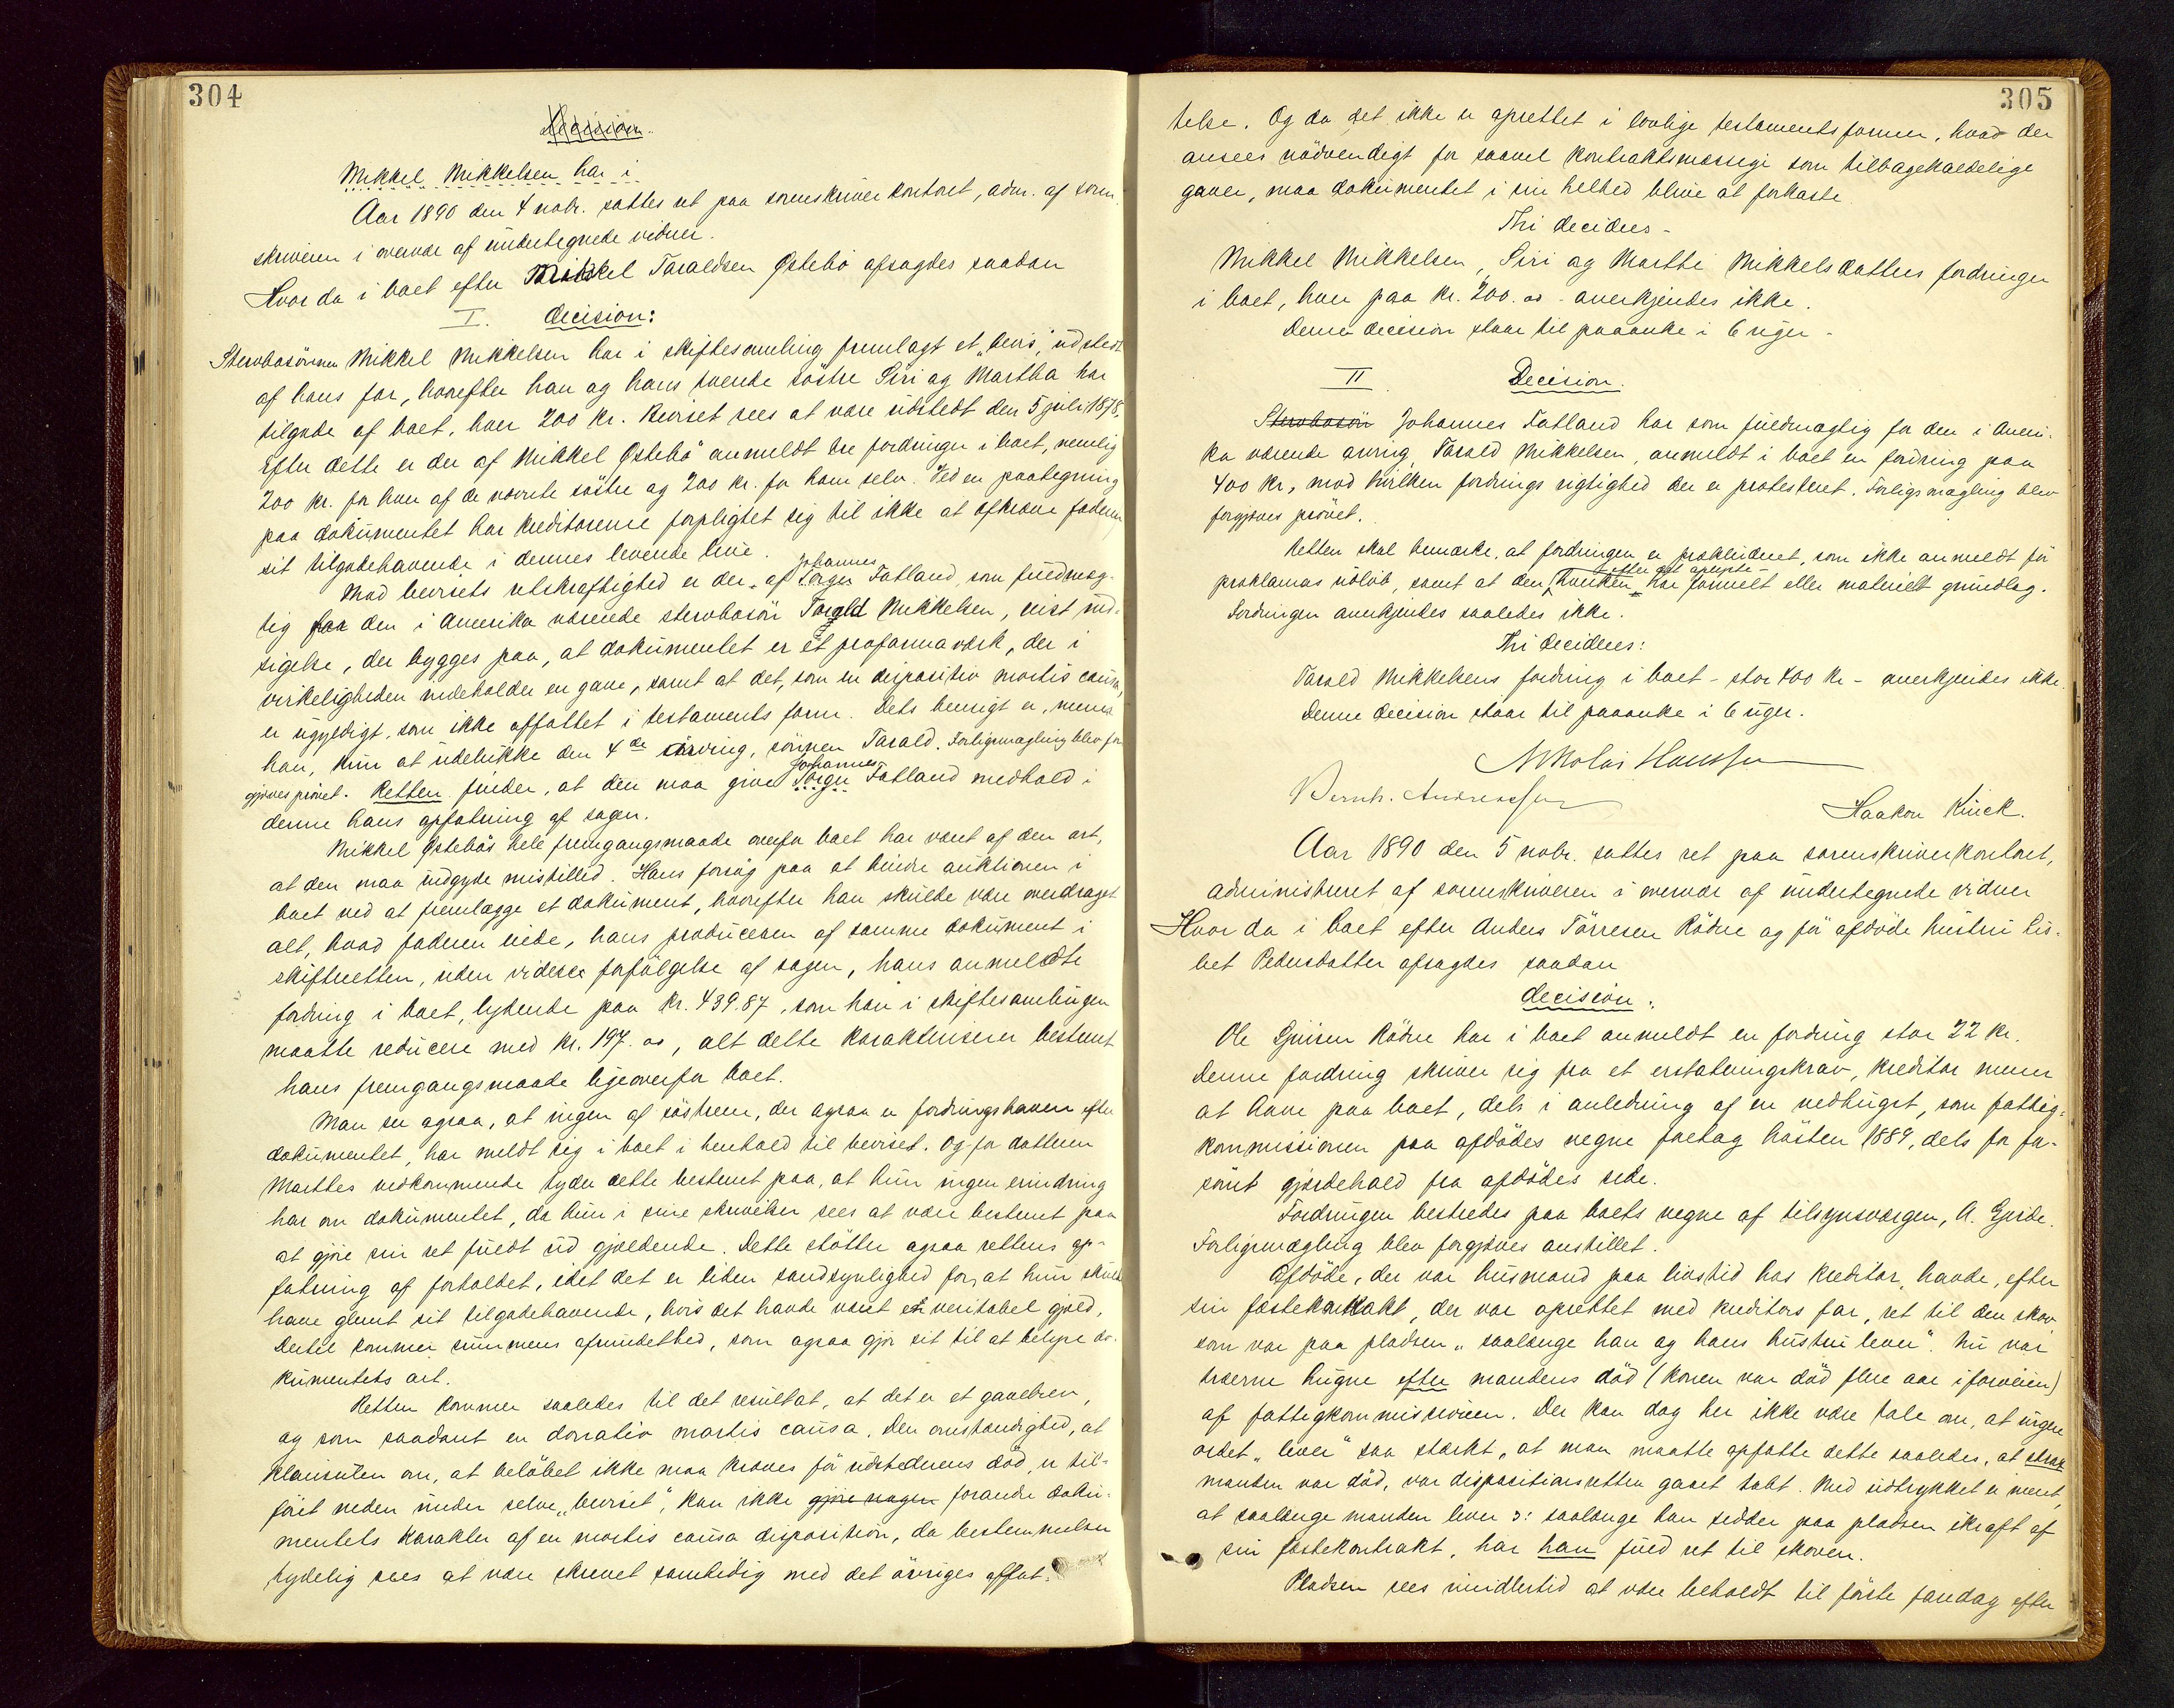 304
Decision.
Mikkel Mikkelsen har i
Aar 1890 den 4 nobr. sattes ret paa sorenskriverkontoret, adm. af soren
skriveren i overvær af undertegnede vidner.
Hvor da i boet efter Mikkel Taraldsen Østebö afsagdes saadan
I. decision:
Stervbosönnen Mikkel Mikkelsen har i skiftesamling fremlagt et „bevis", udstedt
af hans far, hvorefter han og hans tvende söstre Siri og Martha har
tilgode af boet, hver 200 kr. Beviset sees at være udstedt den 5 juli 1878.
Efter dette er der af Mikkel Østebö anmeldt tre fordringer i boet, nemlig
200 kr. for hver af de nævnte söstre og 200 kr. for ham selv. Ved en paategning
paa dokumentet har kreditorerne forpligtet sig til ikke at afkræve faderen
sit tilgodehavende i dennes levende live.
Mod bevisets retskraftighed er der af Johannes Fatland, som fuldmæg-
tig for den i Amerika værende stervbosön Tarald Mikkelsen, reist ind-
sigelse, der bygges paa, at dokumentet er et proformaværk, der i
virkeligheden indeholder en gave, samt at det, som en dispositiv mortis causa,
er ugyldigt, som ikke affattet i testaments form. Dets hensigt er, mener
han, kun at udelukke den 4de arving, sönnen Tarald. Forligsmægling blev for-
gjæves prövet. Retten finder, at den maa give Johannes Fatland medhold i
denne hans opfatning af sagen.
Mikkel Østebös hele fremgangsmaade overfor boet har været af den art,
at den maa indgyde mistillid. Hans forsög paa at hindre auktionen i
boet ved at fremlægge et dokument, hvorefter han skulde være overdraget
alt, hvad faderen eiede, hans produceren af samme dokument i
skifteretten, uden videre forfölgelse af sagen, hans anmeldte
fordring i boet, lydende paa kr. 439.87, som han i skiftesamlingen
maatte reducere med kr. 197.00, alt dette karakteriserer bestemt
hans fremgangsmaade ligeoverfor boet.
Man ser ogsaa, at ingen af söstrene, der ogsaa er fordringshavere efter
dokumentet, har meldt sig i boet i henhold til beviset. Og for datteren
Marthes vedkommende tyder dette bestemt paa, at hun ingen erindring
har om dokumentet, da hun i sine skrivelser sees at være bestemt paa
at gjöre sin ret fuldt ud gjældende. Dette stötter ogsaa rettens op-
fatning af forholdet, idet det er liden sandsynlighed for, at hun skulde
have glemt sit tilgodehavende, hvis det havde været en veritabel gjæld.
Dertil kommer summens afrundethed, som ogsaa gjör sit til at belyse do-
kumentets art.
Retten kommer saaledes til det resultat, at det er et gavebrev,
og som saadant en donatio mortis causa. Den omstændighed, at
klausulen om, at belöbet ikke maa kræves för udstederens död, er til-
föiet neden under selve „beviset", kan ikke gjöre nogen forandre doku-
mentets karakter af en mortis causa disposition, da bestemmelsen
tydelig sees at være skrevet samtidig med det övriges affat-
305
telse. Og da det ikke er oprettet i lovlige testamentsformer, hvad der
ansees nödvendigt for saavel kontraktsmæssige som tilbagekaldelige
gaver, maa dokumentet i sin helhed blive at forkaste.
Thi decideres -
Mikkel Mikkelsen, Siri og Marthe Mikkelsdatters fordringer
i boet, hver paa kr. 200.00 - anerkjendes ikke.
Denne decision staar til paaanke i 6 uger -
II Decision.
Stervbosön Johannes Fatland har som fuldmægtig for den i Ameri-
ka værende arving, Tarald Mikkelsen, anmeldt i boet en fordring paa
400 kr, mod hvilken fordrings rigtighed der er protesteret. Forligsmægling blev
forgjæves prövet.
Retten skal bemærke, at fordringen er prækluderet, som ikke anmeldt för
proklamas udlöb, samt at den efter det oplyste hverken har formelt eller materielt grundlag.
Fordringen anerkjendes saaledes ikke.
Thi decideres:
Tarald Mikkelsens fordring i boet - stor 400 kr - anerkjendes ikke.
Denne decision staar til paaanke i 6 uger.
Nikolai Hanssen
Bernh. Andreassen
Haakon Kinck.
Aar 1890 den 5 nobr. sattes ret paa sorenskriverkontoret,
administreret af sorenskriveren i overvær af undertegnede vidner
Hvor da i boet efter Anders Törresen Rödne og för afdöde hustru Lis-
bet Pedersdatter afsagdes saadan
decision:
Ole Rödne har i boet anmeldt en fordring stor 22 kr.
Denne fordring skriver sig fra et erstatningskrav, kreditor mener
at have paa boet, dels i anledning af en vedhugst, som fattig-
kommissionen paa afdödes vegne foretog hösten 1889, dels for for-
sömt gjærdehold fra afdödes side.
Fordringen bestredes paa boets vegne af tilsynsværgen, A. Gjerde.
Forligsmægling blev forgjæves anstillet.
Afdöde, der var husmand paa livstid hos kreditor, havde, efter
sin fæstekontrakt, der var oprettet med kreditors far, ret til den skov
som var paa pladsen „saalænge han og hans hustru lever". Nu var
trærne hugne efter mandens död (konen var död flere aar iforveien)
af fattigkommissionen. Der kan dog her ikke være tale om, at urgere
ordet „lever" saa stærkt, at man maatte opfatte dette saaledes, at strax
manden var död, var dispositionsretten gaaet tabt. Med udtrykket er ment,
at saalænge manden lever ɔ: saalænge han sidder paa pladsen ikraft af
sin fæstekontrakt, har han fuld ret til skoven.
Pladsen sees imidlertid at være beholdt til förste faredag efter